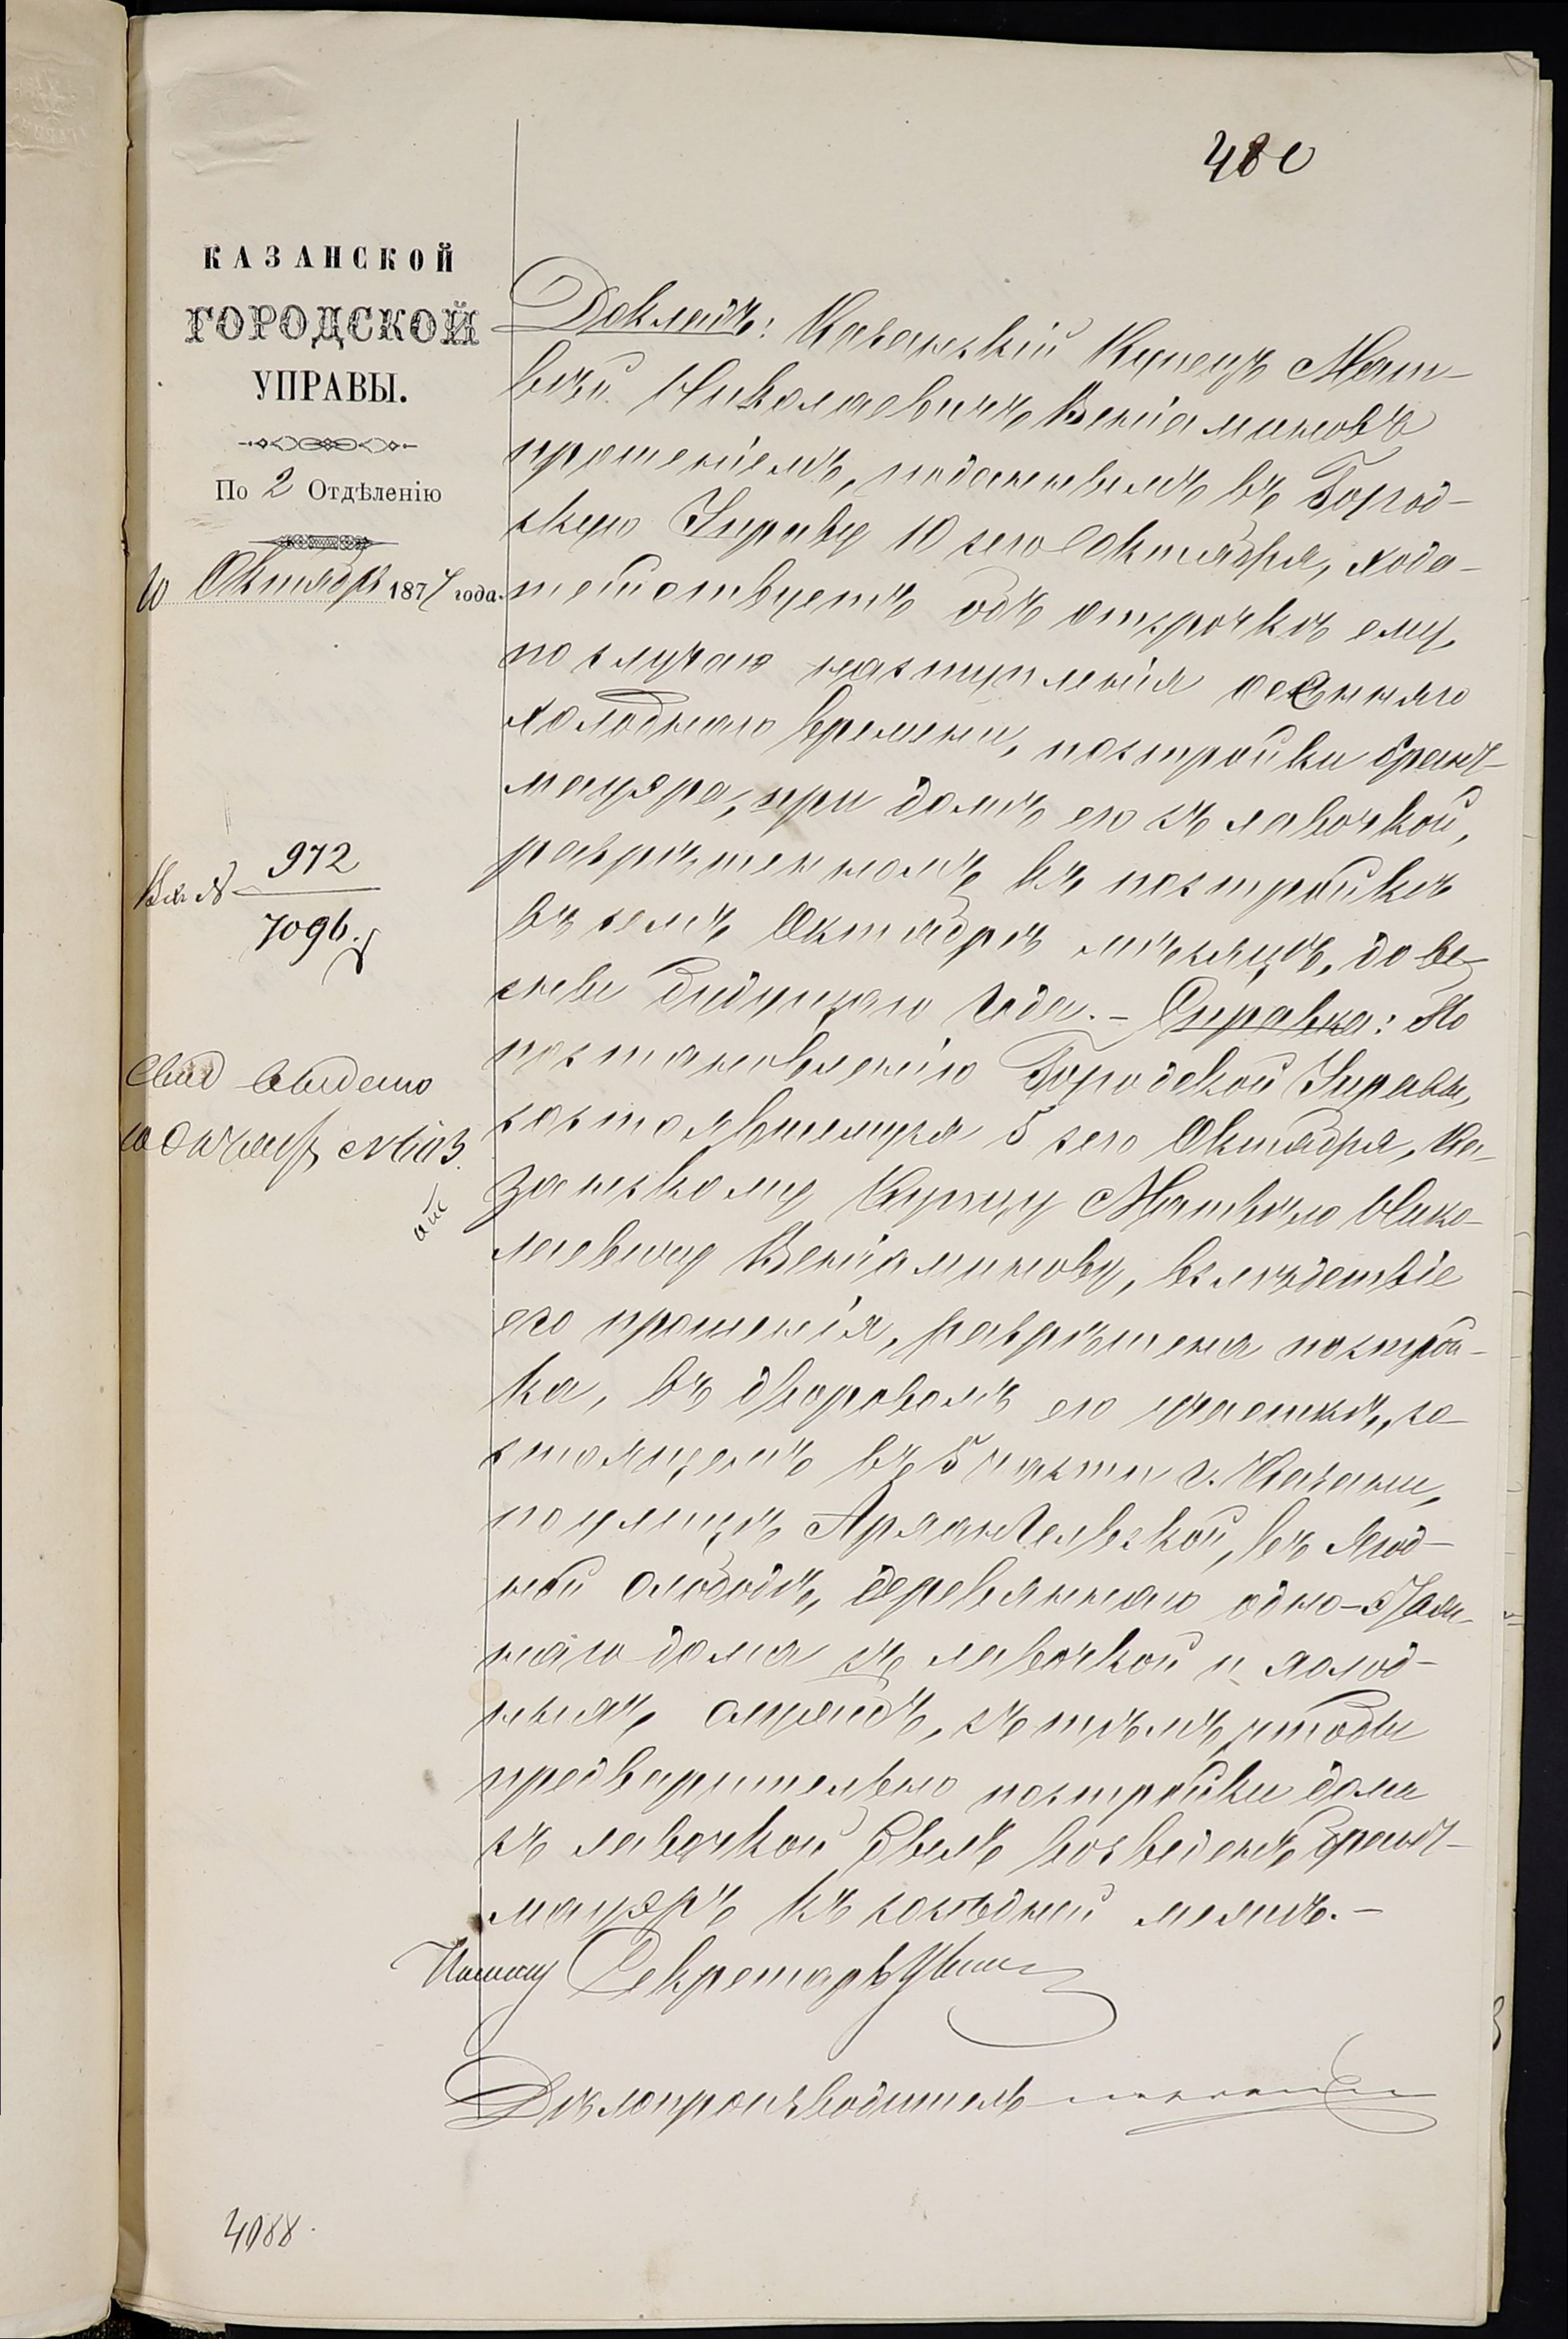 480
КАЗАНСКОЙ
ГОРОДСКОЙ
УПРАВЫ.
По 2 Отдѣленію
10 Октября 1877 года.
Вх. №
972
7096.
Свид выдано
10 Октяб
4088.
Докладъ: Казанскій Купецъ Мат-
вѣй Николаевичъ Веніаминовъ
прошеніемъ, поданнымъ въ Город-
скую Управу 10 сего Октября, хода-
тайствуетъ объ отсрочкѣ ему,
по случаю наступленія осенняго
холоднаго времени, постройки бранд-
мауера, при домѣ его съ лавочкой,
разрѣшенномъ къ постройкѣ
въ семъ Октябрѣ мѣсяцѣ, до ве-
сны будущаго года. – Справка: По
постановленію Городской Управы,
состоявшемуся 5 сего Октября, Ка-
занскому Купцу Матвѣю Нико-
лаевичу Веніаминову, вслѣдствіе
его прошенія, разрѣшена построй-
ка, въ дворовомъ его участкѣ, со-
стоящемъ въ 5 части г. Казани,
по улицѣ Архангельской, въ Ягод-
ной слободѣ, деревяннаго одно-этаж-
наго дома съ лавочкой и холод-
ныхъ службъ, съ тѣмъ, чтобы
предварительно постройки дома
съ лавочкой былъ возведенъ бранд-
мауэръ къ сосѣдней межѣ. –
Секретарь
Дѣлопроизводитель